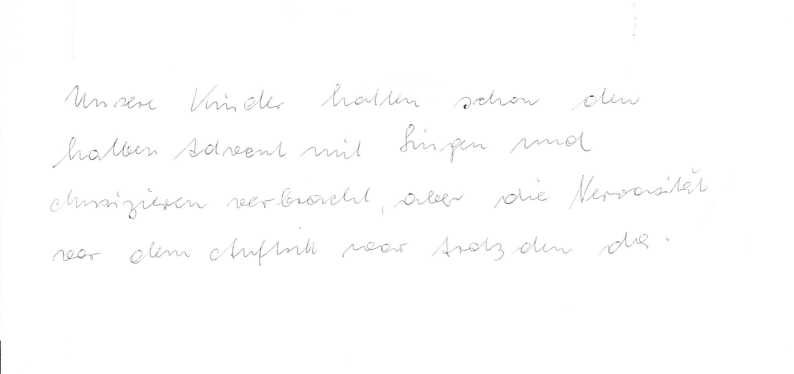 Unsere Kinder hatten schon den
halben Advent mit Singen und
Musizieren verbracht, aber die Nervosität
vor dem Auftritt war trotzdem da.